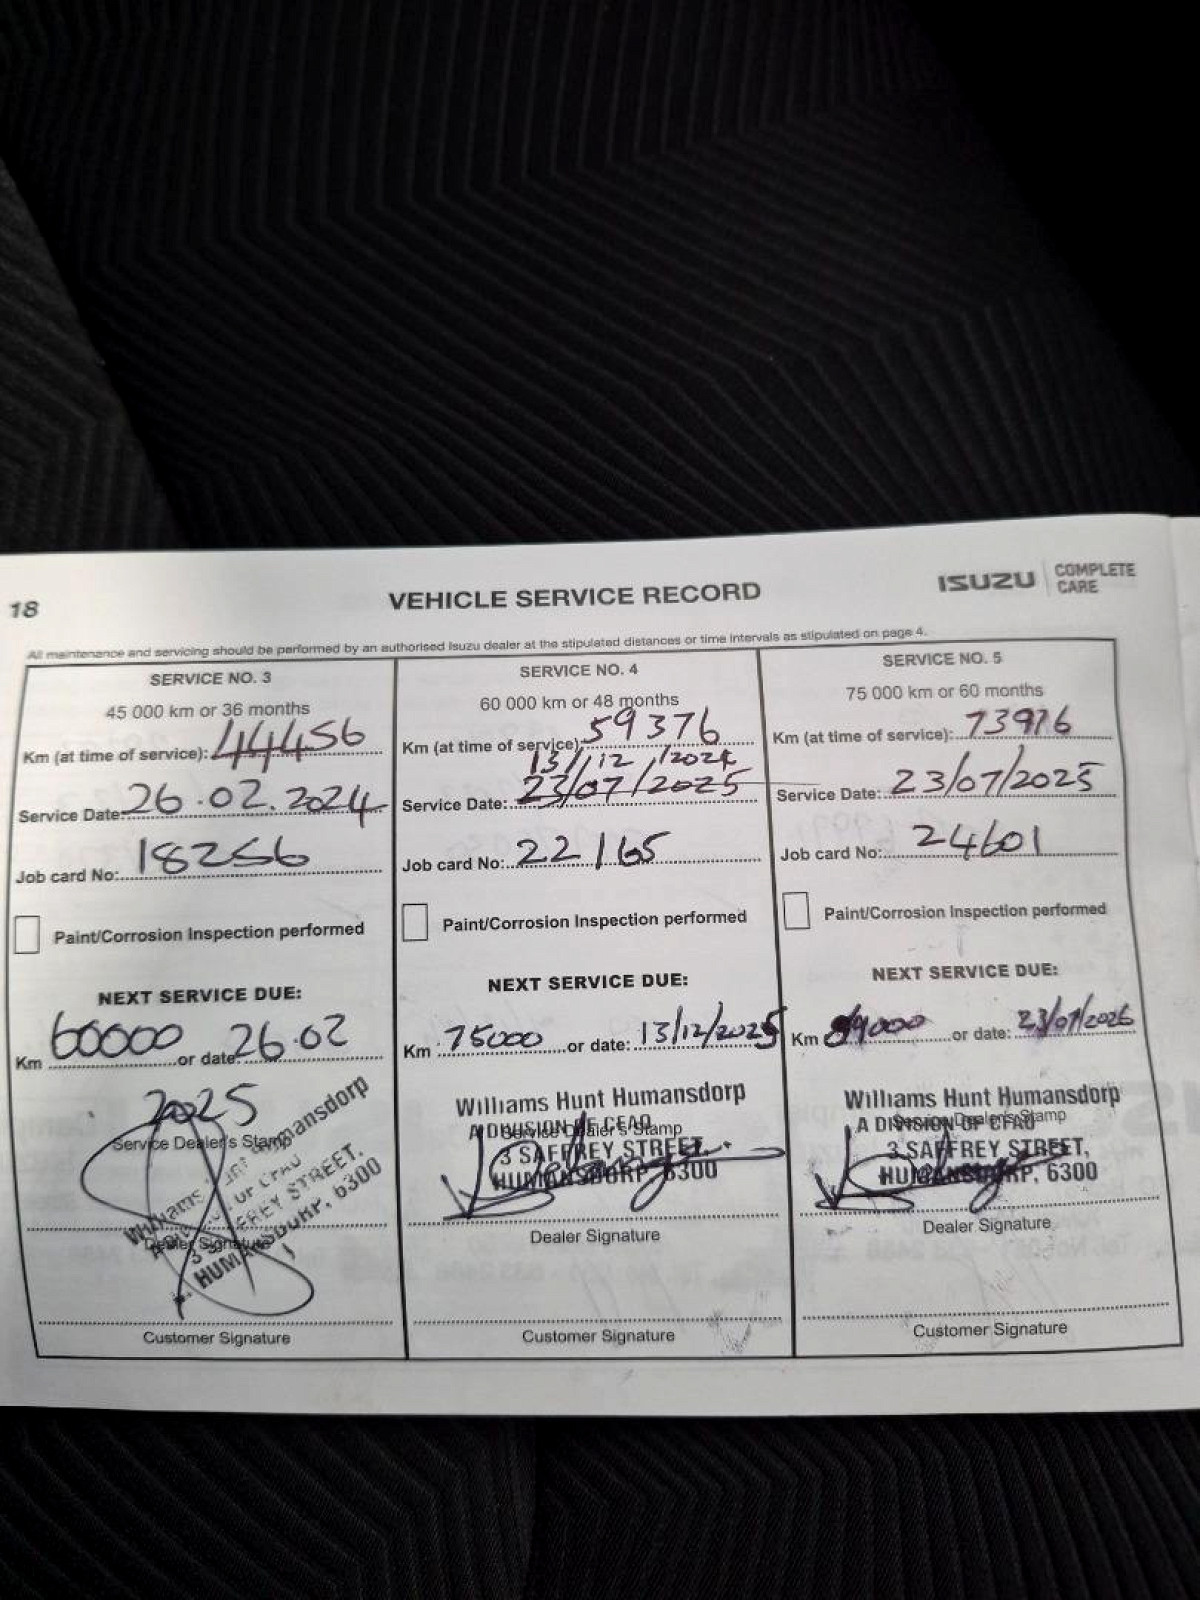 18
VEHICLE SERVICE RECORD
ISUZU COMPLETE CARE
All maintenance and servicing should be performed by an authorised Isuzu dealer at the stipulated distances or time intervals as stipulated on page 4.
SERVICE NO. 3
45 000 km or 36 months
Km (at time of service): 44456
Service Date: 26.02.2024
Job card No: 18256
Paint/Corrosion Inspection performed
NEXT SERVICE DUE:
Km 60000 or date: 26.02
2025
Service Dealer's Stamp
Williams Hunt Humansdorp
A DIVISION OF CFAO
3 SAFFREY STREET,
HUMANSDORP, 6300
Dealer Signature
Customer Signature
SERVICE NO. 4
60 000 km or 48 months
Km (at time of service): 59376
13/12/2024
Service Date: 23/07/2025
Job card No: 22165
Paint/Corrosion Inspection performed
NEXT SERVICE DUE:
Km 75000 or date: 13/12/2025
Williams Hunt Humansdorp
A DIVISION OF CFAO
Service Dealer's Stamp
3 SAFFREY STREET,
HUMANSDORP, 6300
Dealer Signature
Customer Signature
SERVICE NO. 5
75 000 km or 60 months
Km (at time of service): 73976
Service Date: 23/07/2025
Job card No: 24601
Paint/Corrosion Inspection performed
NEXT SERVICE DUE:
Km 89000 or date: 23/07/2026
Williams Hunt Humansdorp
Service Dealer's Stamp
A DIVISION OF CFAO
3 SAFFREY STREET,
HUMANSDORP, 6300
Dealer Signature
Customer Signature